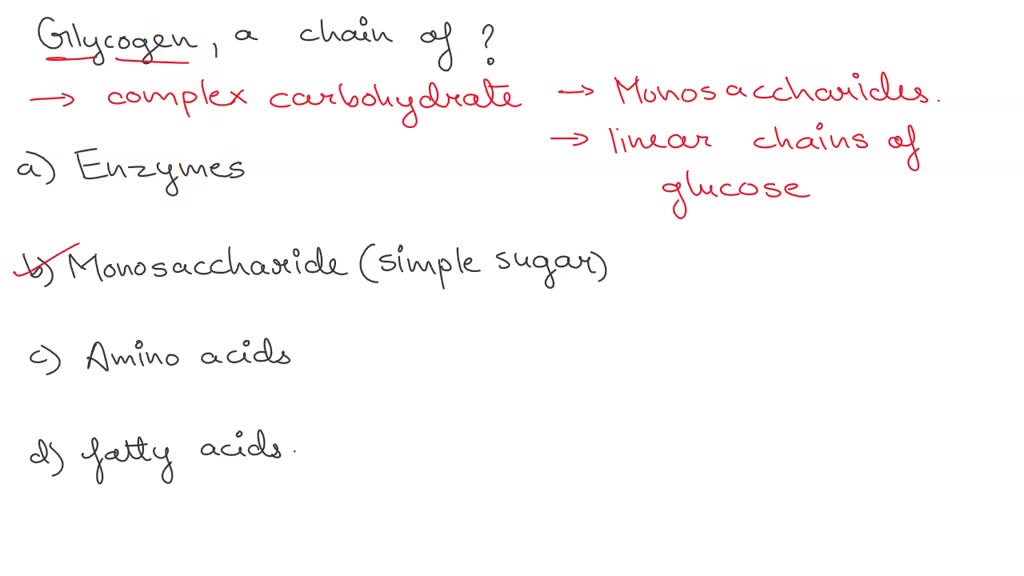 Glycogen, a chain of ?
→ complex carbohydrate → Monosaccharides.
→ linear chains of
glucose
a) Enzymes
b) Monosaccharide (simple sugar)
c) Amino acids
d) fatty acids.